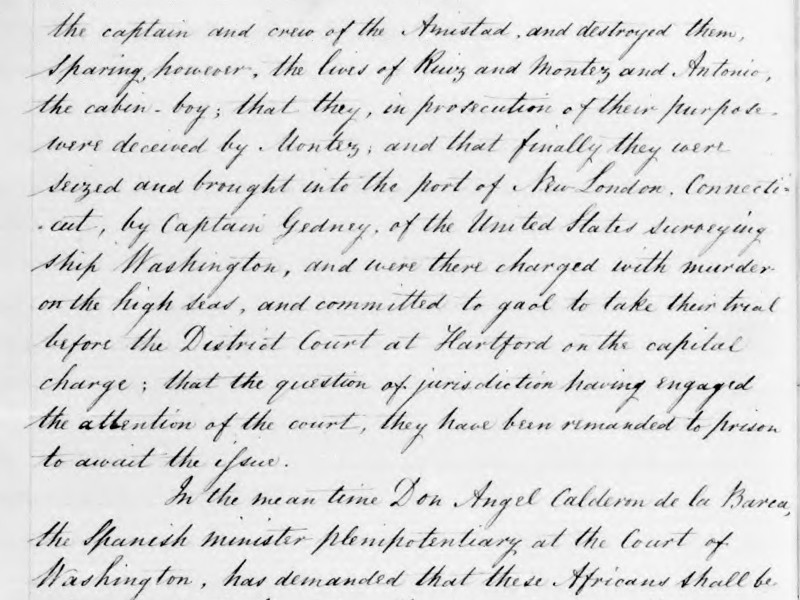 the captain and crew of the Amistad, and destroyed them,
sparing, however, the lives of Ruiz and Montez and Antonio,
the cabin-boy; that they, in prosecution of their purpose.
were deceived by Montez; and that finally they were
seized and brought into the port of New London. Connecti-
-cut, by Captain Gedney, of the United States surveying
ship Washington, and were there charged with murder
on the high seas, and committed to gaol to take their trial
before the District Court at Hartford on the capital
charge; that the question of jurisdiction having engaged
the attention of the court, they have been remanded to prison
to await the issue.
In the mean time Don Angel Calderon de la Barca,
the Spanish minister plenipotentiary at the Court of
Washington, has demanded that these Africans shall be